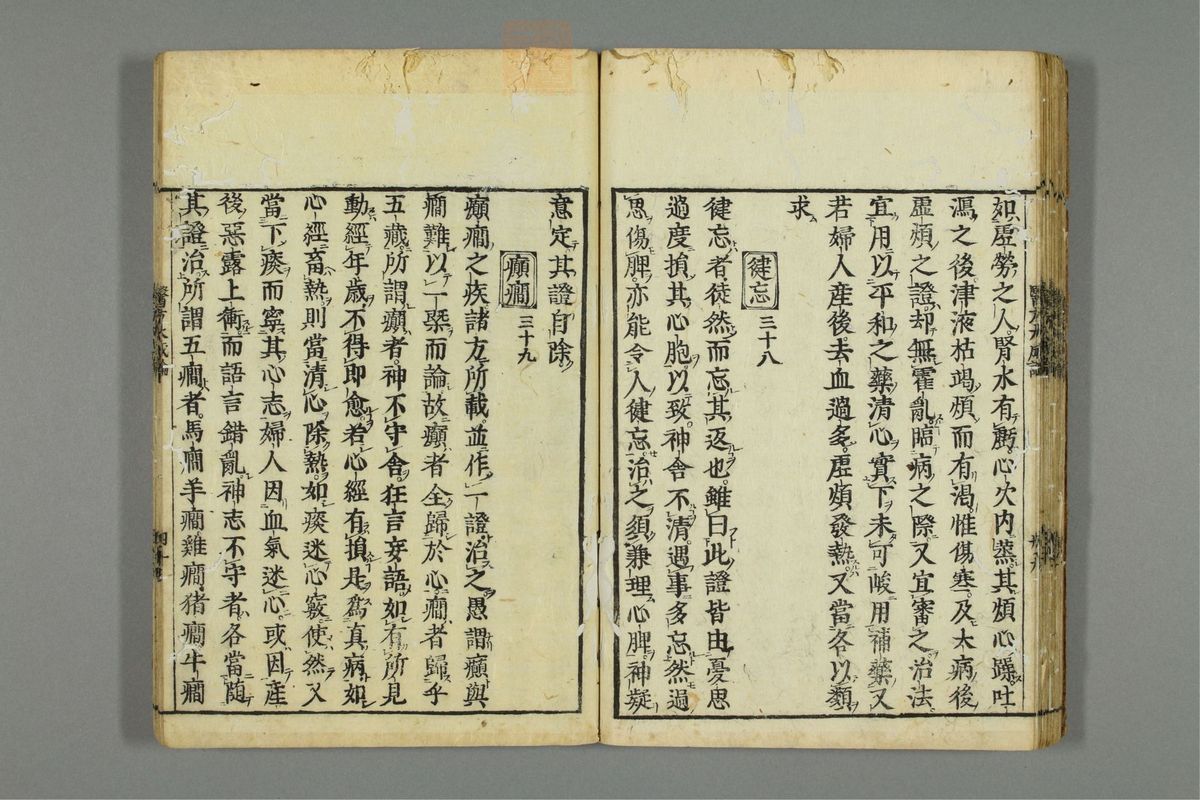 如虚勞之人腎水有虧心火内蒸其煩心躁吐
瀉之後津液枯竭煩而有渴惟傷寒及大病後
虚煩之證却無霍亂臨病之際又宜審之治法
宜用以平和之藥清心實下未可峻用補藥又
若婦人産後去血過多虚煩發熱又當各以類
求
健忘 三十八
健忘者徒然而忘其返也雖曰此證皆由憂思
過度損其心胞以致神舍不清遇事多忘然過
思傷脾亦能令人健忘治之須兼理心脾神凝
意定其證自除
癲癎 三十九
癲癎之疾諸方所載並作一證治之愚謂癲與
癎難以一槩而論故癲者全歸於心癎者歸乎
五藏所謂癲者神不守舍狂言妄語如有所見
動經年歳不得即愈若心經有損是爲真病如
心經畜熱則當清心除熱如痰迷心竅使然又
當下痰而寧其心志婦人因血氣迷心或因産
後惡露上衝而語言錯亂神志不守者各當随
其證治所謂五癎者馬癎羊癎雞癎猪癎牛癎